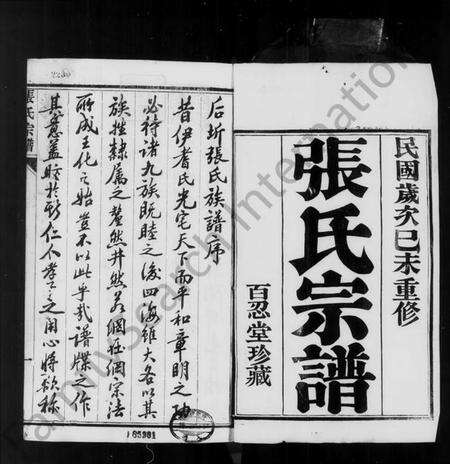 民國歲次己未重修
張氏宗譜
百忍堂珍藏
后圻張氏族譜序
昔伊耆氏光宅天下而平和章明之功
必待諸九族既睦之後四海雖大各以其
族姓隸屬之釐然井然若網在綱宗法
所成王化之始豈不以此乎哉譜牒之作
其意蓋昉於斯仁人孝子之用心將欲称
張氏宗譜
2230
185981
familysearch international